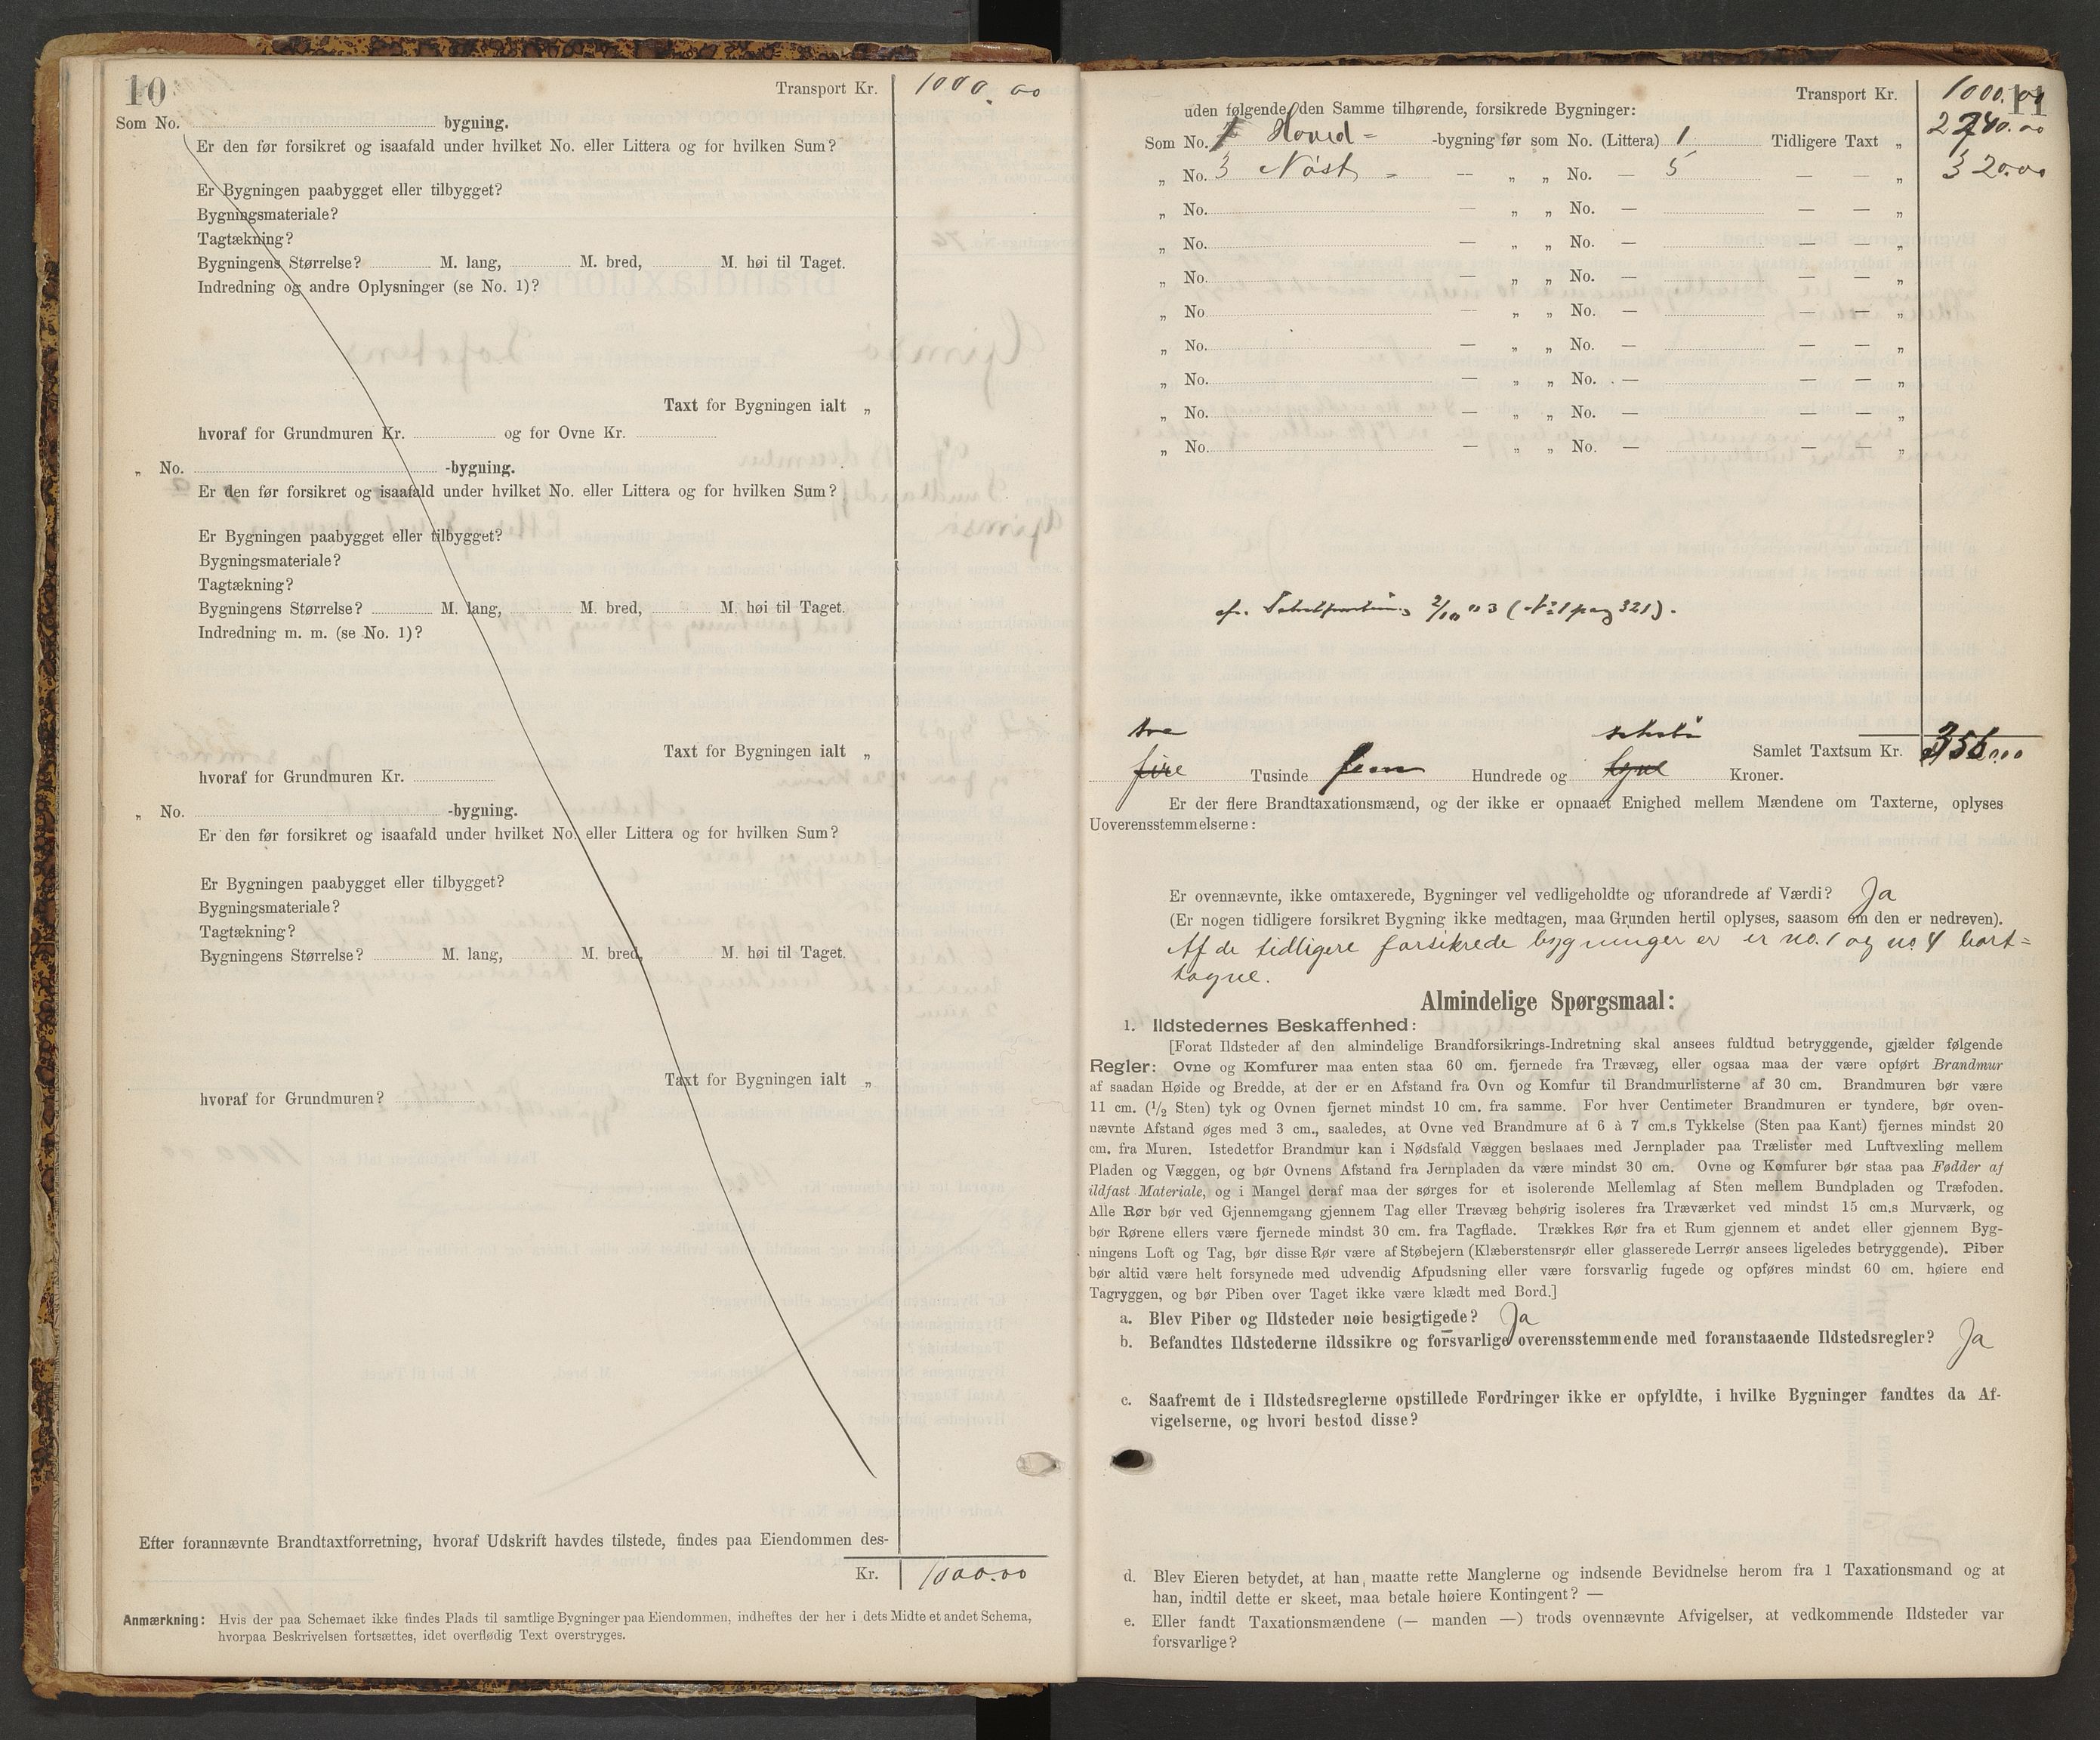 10
Transport Kr. 1000.00
Som No. bygning.
Er den før forsikret og isaafald under hvilket No. eller Littera og for hvilken Sum?
Er Bygningen paabygget eller tilbygget?
Bygningsmateriale?
Tagtækning?
Bygningens Størrelse? M. lang, M. bred, M. høi til Taget.
Indredning og andre Oplysninger (se No. 1)?
Taxt for Bygningen ialt „
hvoraf for Grundmuren Kr. og for Ovne Kr.
„ No. -bygning.
Er den før forsikret og isaafald under hvilket No. eller Littera og for hvilken Sum?
Er Bygningen paabygget eller tilbygget?
Bygningsmateriale?
Tagtækning?
Bygningens Størrelse? M. lang, M. bred, M. høi til Taget.
Indredning m. m. (se No. 1)?
Taxt for Bygningen ialt „
hvoraf for Grundmuren Kr.
„ No. -bygning.
Er den før forsikret og isaafald under hvilket No. eller Littera og for hvilken Sum?
Er Bygningen paabygget eller tilbygget?
Bygningsmateriale?
Tagtækning?
Bygningens Størrelse? M. lang, M. bred, M. høi til Taget.
Taxt for Bygningen ialt „
hvoraf for Grundmuren?
Efter forannævnte Brandtaxtforretning, hvoraf Udskrift havdes tilstede, findes paa Eiendommen des-
Kr. 1000.00
Anmærkning: Hvis der paa Schemaet ikke findes Plads til samtlige Bygninger paa Eiendommen, indheftes der her i dets Midte et andet Schema,
hvorpaa Beskrivelsen fortsættes, idet overflødig Text overstryges.
11
Transport Kr. 1000.00
uden følgende den Samme tilhørende, forsikrede Bygninger:
Som No. 1 Hoved- -bygning før som No. (Littera) 1 Tidligere Taxt „ 2240.00
„ No. 3 Nøst - — „ „ No. — 5 — — „ 320.00
„ No. — „ „ No. — — — „
„ No. — „ „ No. — — — „
„ No. — „ „ No. — — — „
„ No. — „ „ No. — — — „
„ No. — „ „ No. — — — „
„ No. — „ „ No. — — — „
„ No. — „ „ No. — — — „
„ No. — „ „ No. — — — „
cfr. 2/10 03 (No 1 pag 321).
tre seksti Samlet Taxtsum Kr. 3560.00
fire Tusinde fem Hundrede og Kroner.
Er der flere Brandtaxationsmænd, og der ikke er opnaaet Enighed mellem Mændene om Taxterne, oplyses
Uoverensstemmelserne:
Er ovennævnte, ikke omtaxerede, Bygninger vel vedligeholdte og uforandrede af Værdi? Ja
(Er nogen tidligere forsikret Bygning ikke medtagen, maa Grunden hertil oplyses, saasom om den er nedreven).
Af de tidligere forsikrede bygninger er er no. 1 og no. 4 bort-
tagne.
Almindelige Spørgsmaal:
1. Ildstedernes Beskaffenhed:
[Forat Ildsteder af den almindelige Brandforsikrings-Indretning skal ansees fuldtud betryggende, gjælder følgende
Regler: Ovne og Komfurer maa enten staa 60 cm. fjernede fra Trævæg, eller ogsaa maa der være opført Brandmur
af saadan Høide og Bredde, at der er en Afstand fra Ovn og Komfur til Brandmurlisterne af 30 cm. Brandmuren bør være
11 cm. (1/2 Sten) tyk og Ovnen fjernet mindst 10 cm. fra samme. For hver Centimeter Brandmuren er tyndere, bør oven-
nævnte Afstand øges med 3 cm., saaledes, at Ovne ved Brandmure af 6 à 7 cm.s Tykkelse (Sten paa Kant) fjernes mindst 20
cm. fra Muren. Istedetfor Brandmur kan i Nødsfald Væggen beslaaes med Jernplader paa Trælister med Luftvexling mellem
Pladen og Væggen, og bør Ovnens Afstand fra Jernpladen da være mindst 30 cm. Ovne og Komfurer bør staa paa Fødder af
ildfast Materiale, og i Mangel deraf maa der sørges for et isolerende Mellemlag af Sten mellem Bundpladen og Træfoden.
Alle Rør bør ved Gjennemgang gjennem Tag eller Trævæg behørig isoleres fra Træværket ved mindst 15 cm.s Murværk, og
bør Rørene ellers være fjernede mindst 30 cm. fra Tagflade. Trækkes Rør fra et Rum gjennem et andet eller gjennem Byg-
ningens Loft og Tag, bør disse Rør være af Støbejern (Klæberstensrør eller glasserede Lerrør ansees ligeledes betryggende). Piber
bør altid være helt forsynede med udvendig Afpudsning eller være forsvarlig fugede og opføres mindst 60 cm. høiere end
Tagryggen, og bør Piben over Taget ikke være klædt med Bord.]
a. Blev Piber og Ildsteder nøie besigtigede? Ja
b. Befandtes Ildstederne ildssikre og forsvarlige overensstemmende med foranstaaende Ildstedsregler? Ja
c. Saafremt de i Ildstedsreglerne opstillede Fordringer ikke er opfyldte, i hvilke Bygninger fandtes da Af-
vigelserne, og hvori bestod disse?
d. Blev Eieren betydet, at han maatte rette Manglerne og indsende Bevidnelse herom fra 1 Taxationsmand og at
han, indtil dette er skeet, maa betale høiere Kontingent? —
e. Eller fandt Taxationsmændene (— manden —) trods ovennævnte Afvigelser, at vedkommende Ildsteder var
forsvarlige?